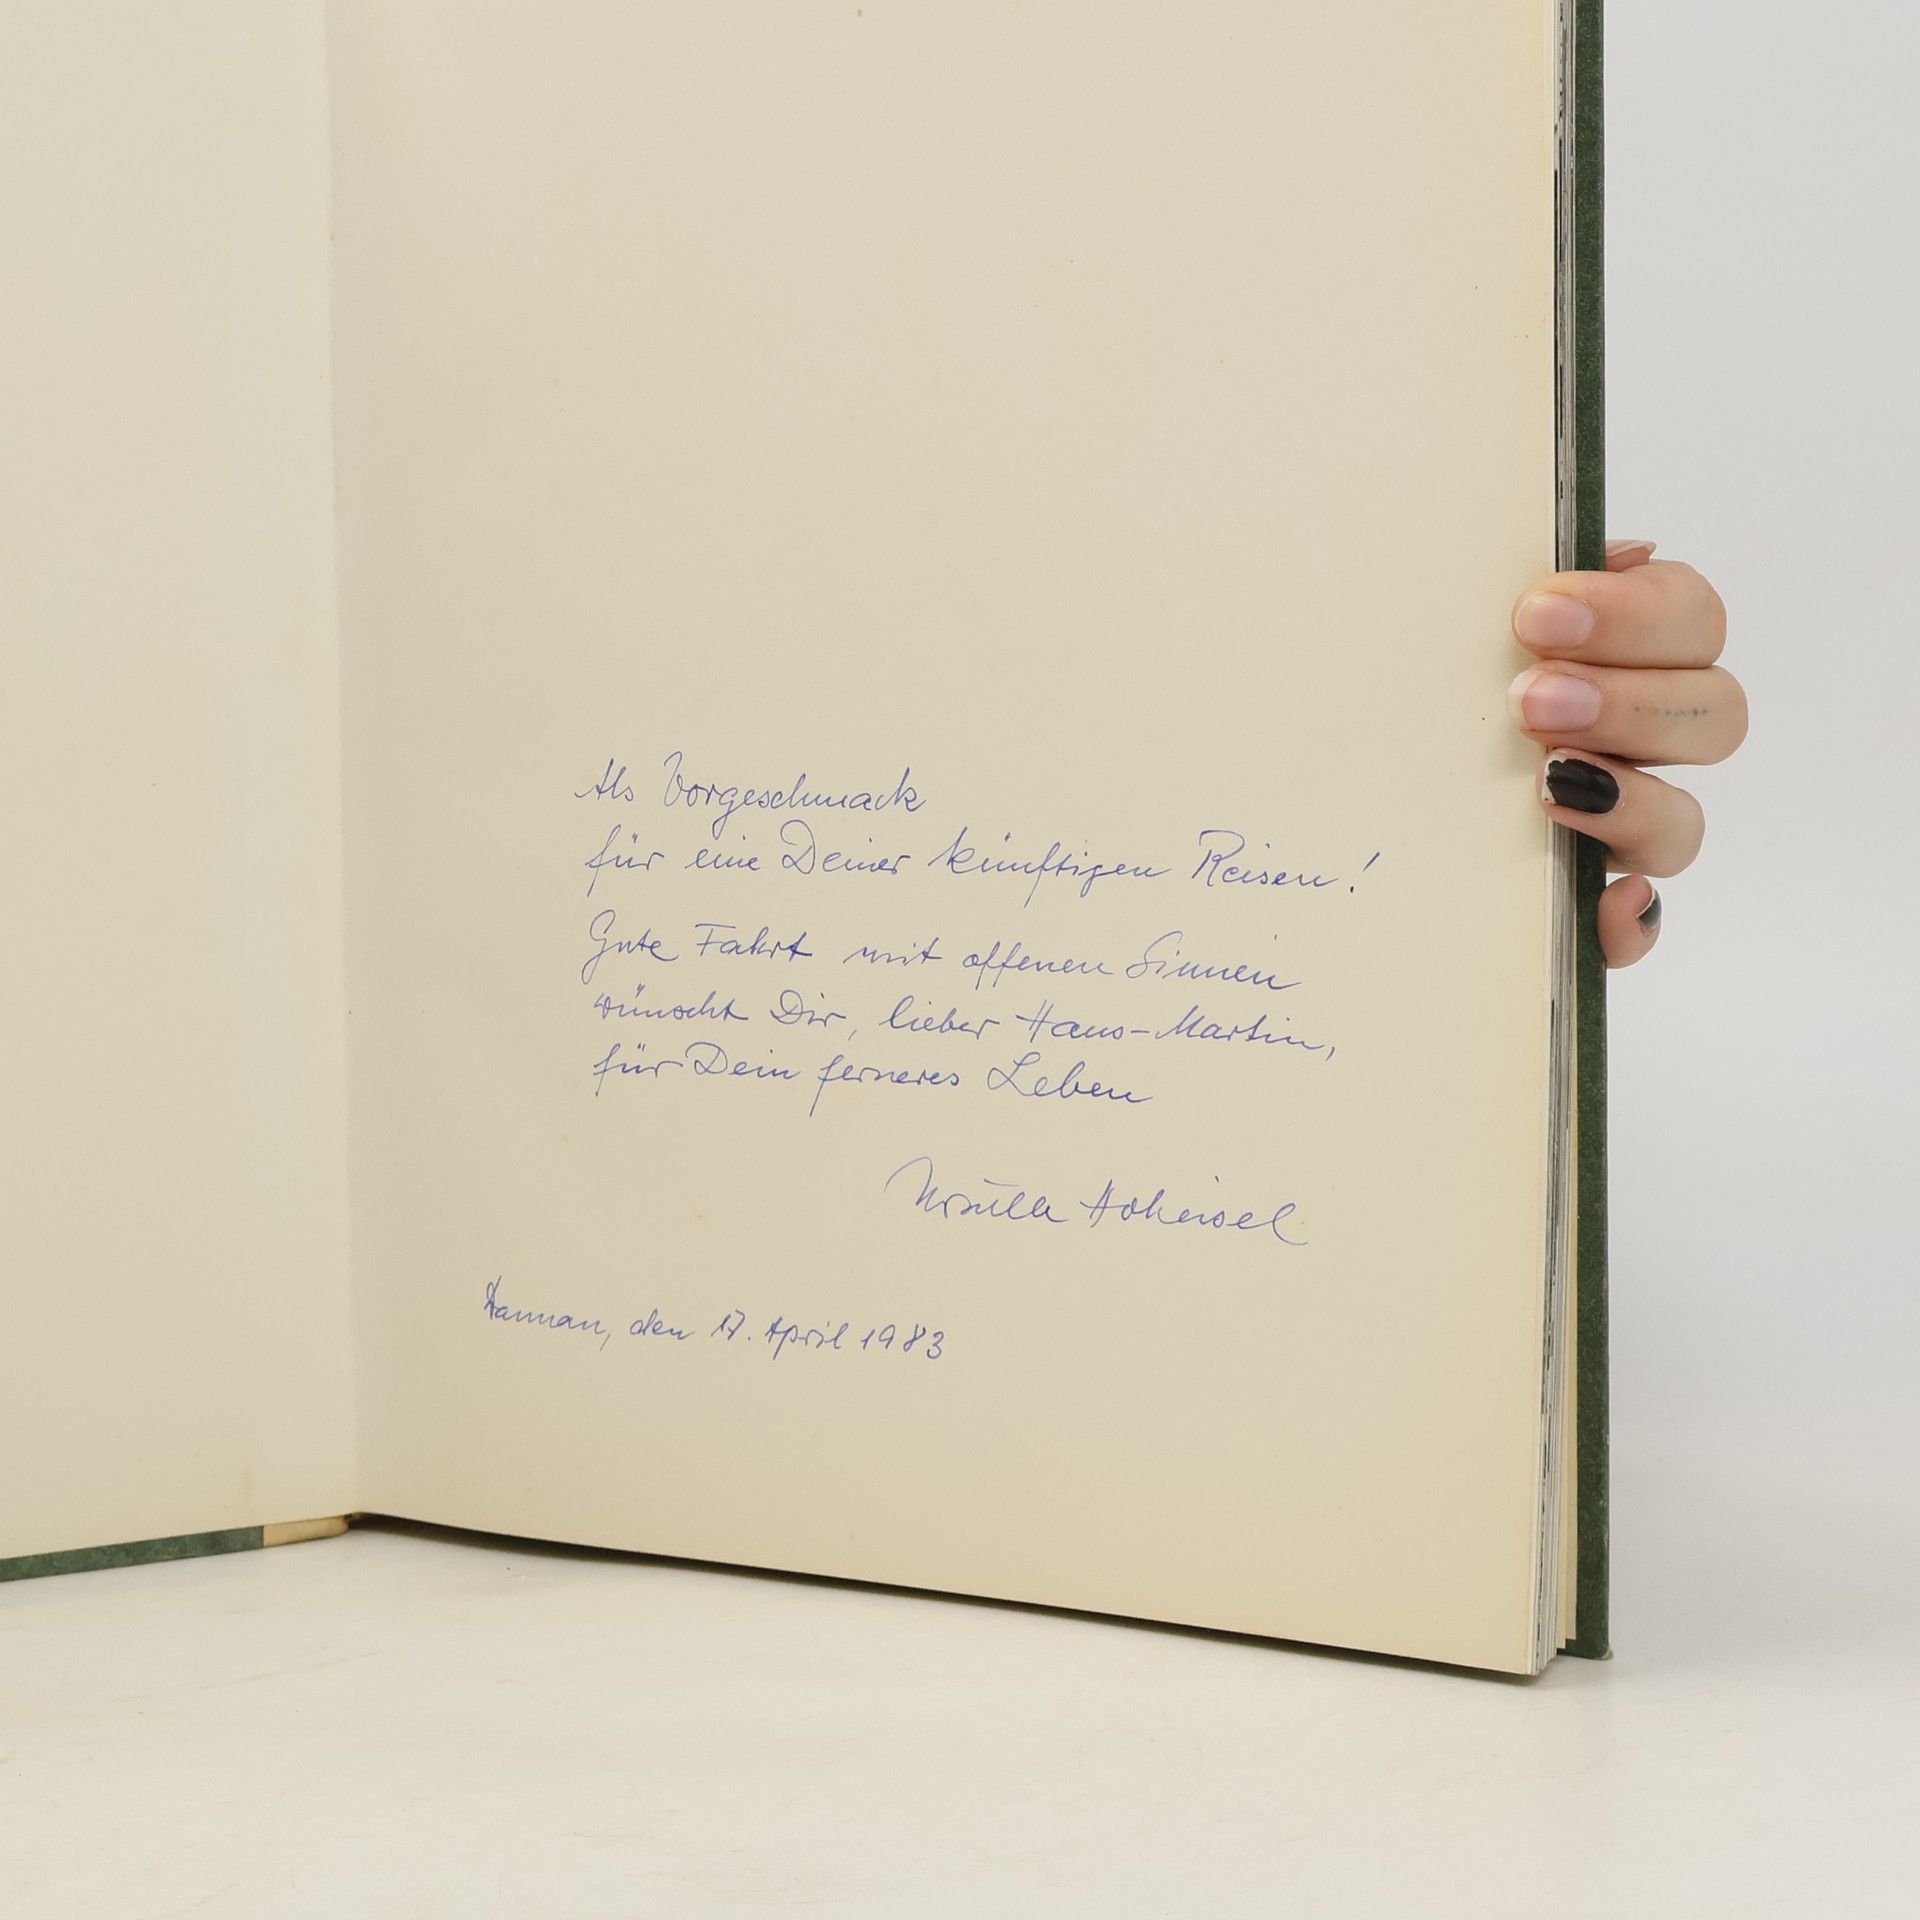 Als Vorgeschmack
für eine Deiner künftigen Reisen!
Gute Fahrt mit offenen Sinnen
wünscht Dir, lieber Hans-Martin,
für Dein ferneres Leben
Ursula Hoheisel
den 17. April 1983